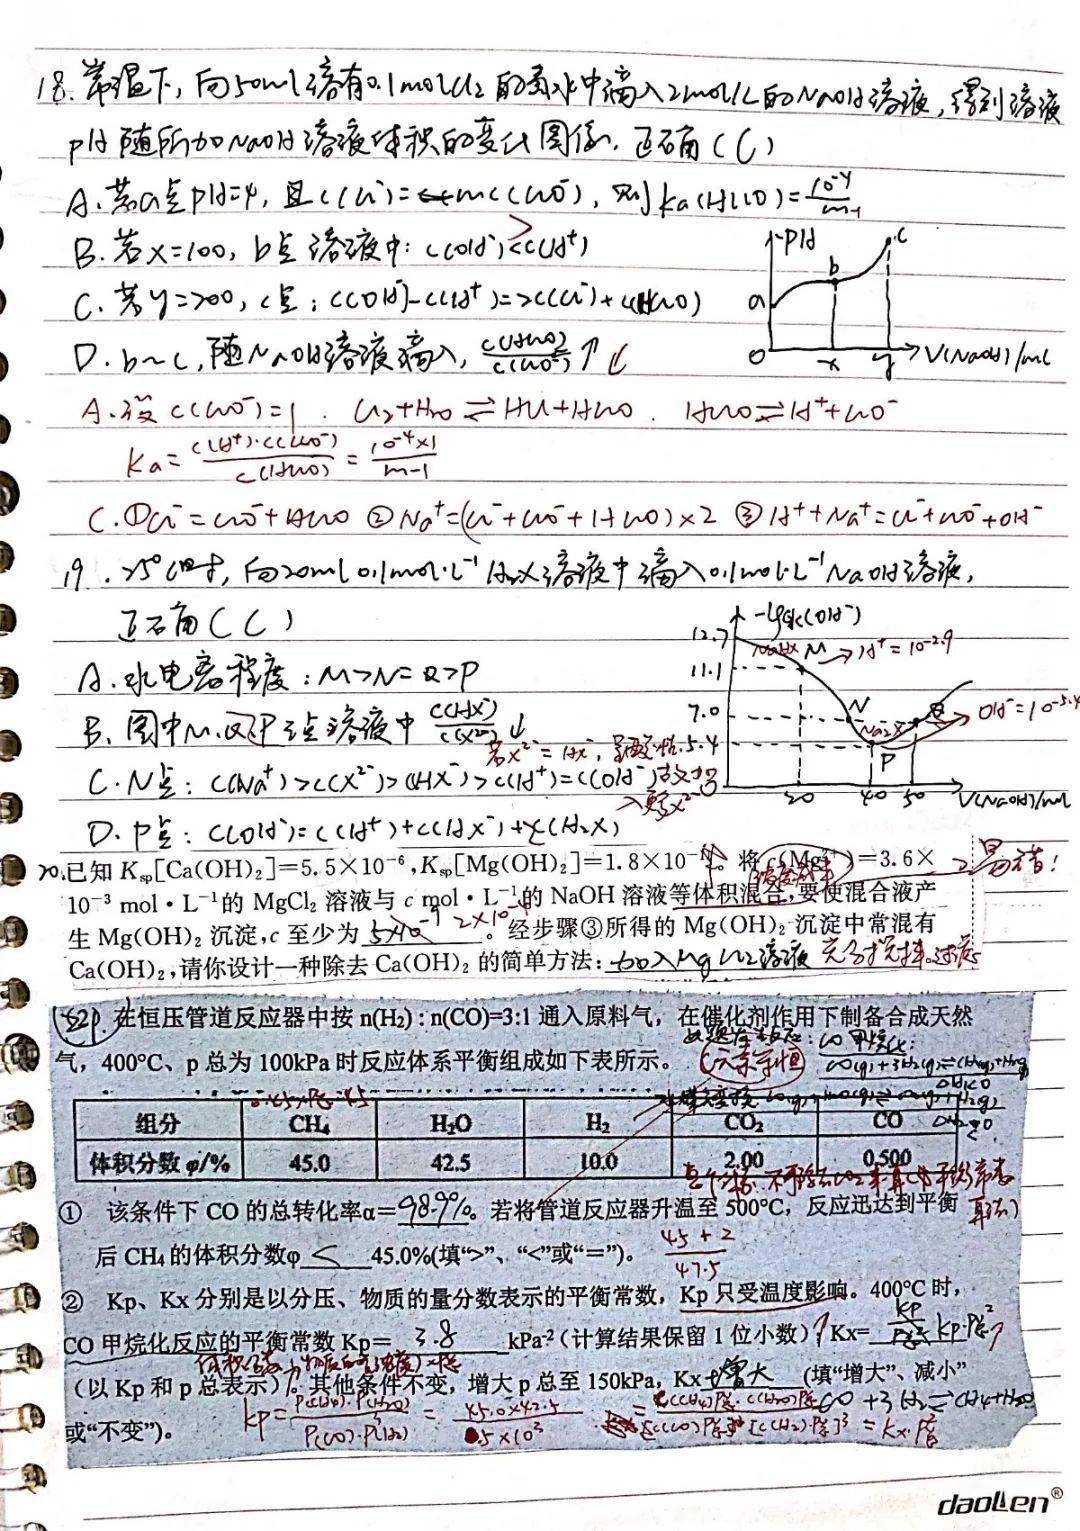 18. 常温下, 向50ml溶有0.1molCl₂的氯水中滴入2mol/L的NaOH溶液, 得到溶液
pH随所加NaOH溶液体积的变化图像. 正确(C)
A. 若a点pH=4, 且c(Cl⁻)=mc(ClO⁻), 则Ka(HClO)=10⁻⁴/m-1
B. 若x=100, b点溶液中: c(OH⁻)<c(H⁺)
>
C. 若y=200, c点: c(OH⁻)-c(H⁺)=2c(Cl⁻)+c(HClO)
D. b~c, 随NaOH溶液滴入, c(HClO)/c(ClO⁻)↑
pH
a b c
O x y V(NaOH)/mL
A. 设c(ClO⁻)=1. Cl₂+H₂O⇌HCl+HClO. HClO⇌H⁺+ClO⁻
Ka=c(H⁺)·c(ClO⁻)/c(HClO)=10⁻⁴×1/m-1
C. ①Cl⁻=ClO⁻+HClO ②Na⁺=(Cl⁻+ClO⁻+HClO)×2 ③H⁺+Na⁺=Cl⁻+ClO⁻+OH⁻
19. 25℃时, 向20ml 0.1mol·L⁻¹ H₂X溶液中滴入0.1mol·L⁻¹NaOH溶液,
正确(C)
A. 水电离程度: M>N=Q>P
B. 图中M.P三点溶液中 c(HX⁻)/c(X²⁻)↓
C. N点: c(Na⁺)>c(X²⁻)>c(HX⁻)>c(H⁺)=c(OH⁻)
D. P点: c(OH⁻)=c(H⁺)+c(HX⁻)+c(H₂X)
-lgc(OH⁻)
12.7 NaHX M → H⁺=10⁻²·⁹
11.1
7.0 N Na₂X Q OH⁻=10⁻⁵·⁴
5.4 P
20 40 50 V(NaOH)/ml
20.已知 Ksp[Ca(OH)₂]=5.5×10⁻⁶,Ksp[Mg(OH)₂]=1.8×10⁻¹¹。将c(Mg²⁺)=3.6×
易错!
10⁻³ mol·L⁻¹的 MgCl₂ 溶液与 c mol·L⁻¹的 NaOH 溶液等体积混合,要使混合液产
生 Mg(OH)₂ 沉淀,c 至少为 2×10⁻⁴。经步骤③所得的 Mg(OH)₂ 沉淀中常混有
Ca(OH)₂,请你设计一种除去 Ca(OH)₂ 的简单方法:加入MgCl₂溶液 充分搅拌.过滤
在恒压管道反应器中按 n(H₂):n(CO)=3:1 通入原料气，在催化剂作用下制备合成天然
气，400℃、p 总为 100kPa 时反应体系平衡组成如下表所示。
CO甲烷化:
CO(g)+3H₂(g)⇌CH₄(g)+H₂O(g)
ΔH<0
组分 CH₄ H₂O H₂ CO₂ CO
体积分数 φ/% 45.0 42.5 10.0 2.00 0.500
① 该条件下 CO 的总转化率α=98.9%。若将管道反应器升温至 500℃，反应迅达到平衡
后 CH₄ 的体积分数φ < 45.0%(填“>”、“<”或“=”)。
45+2
47.5
② Kp、Kx 分别是以分压、物质的量分数表示的平衡常数，Kp 只受温度影响。400℃ 时，
CO 甲烷化反应的平衡常数 Kp= 3.8 kPa⁻²(计算结果保留 1 位小数)；Kx= Kp·P总²
(以 Kp 和 p 总表示)。其他条件不变，增大 p 总至 150kPa，Kx 增大 (填“增大”、减小”
或“不变”)。
Kp=P(CH₄)·P(H₂O)/P(CO)·P³(H₂)=45.0×42.5/0.5×10³
CO+3H₂⇌CH₄+H₂O
daolen®